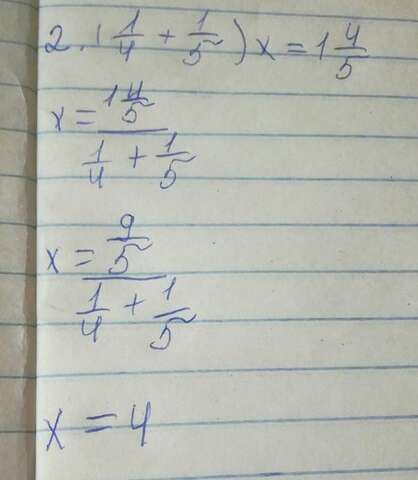 2. (1/4 + 1/5)x = 1 4/5
x = (1 4/5)/(1/4 + 1/5)
x = (9/5)/(1/4 + 1/5)
x = 4